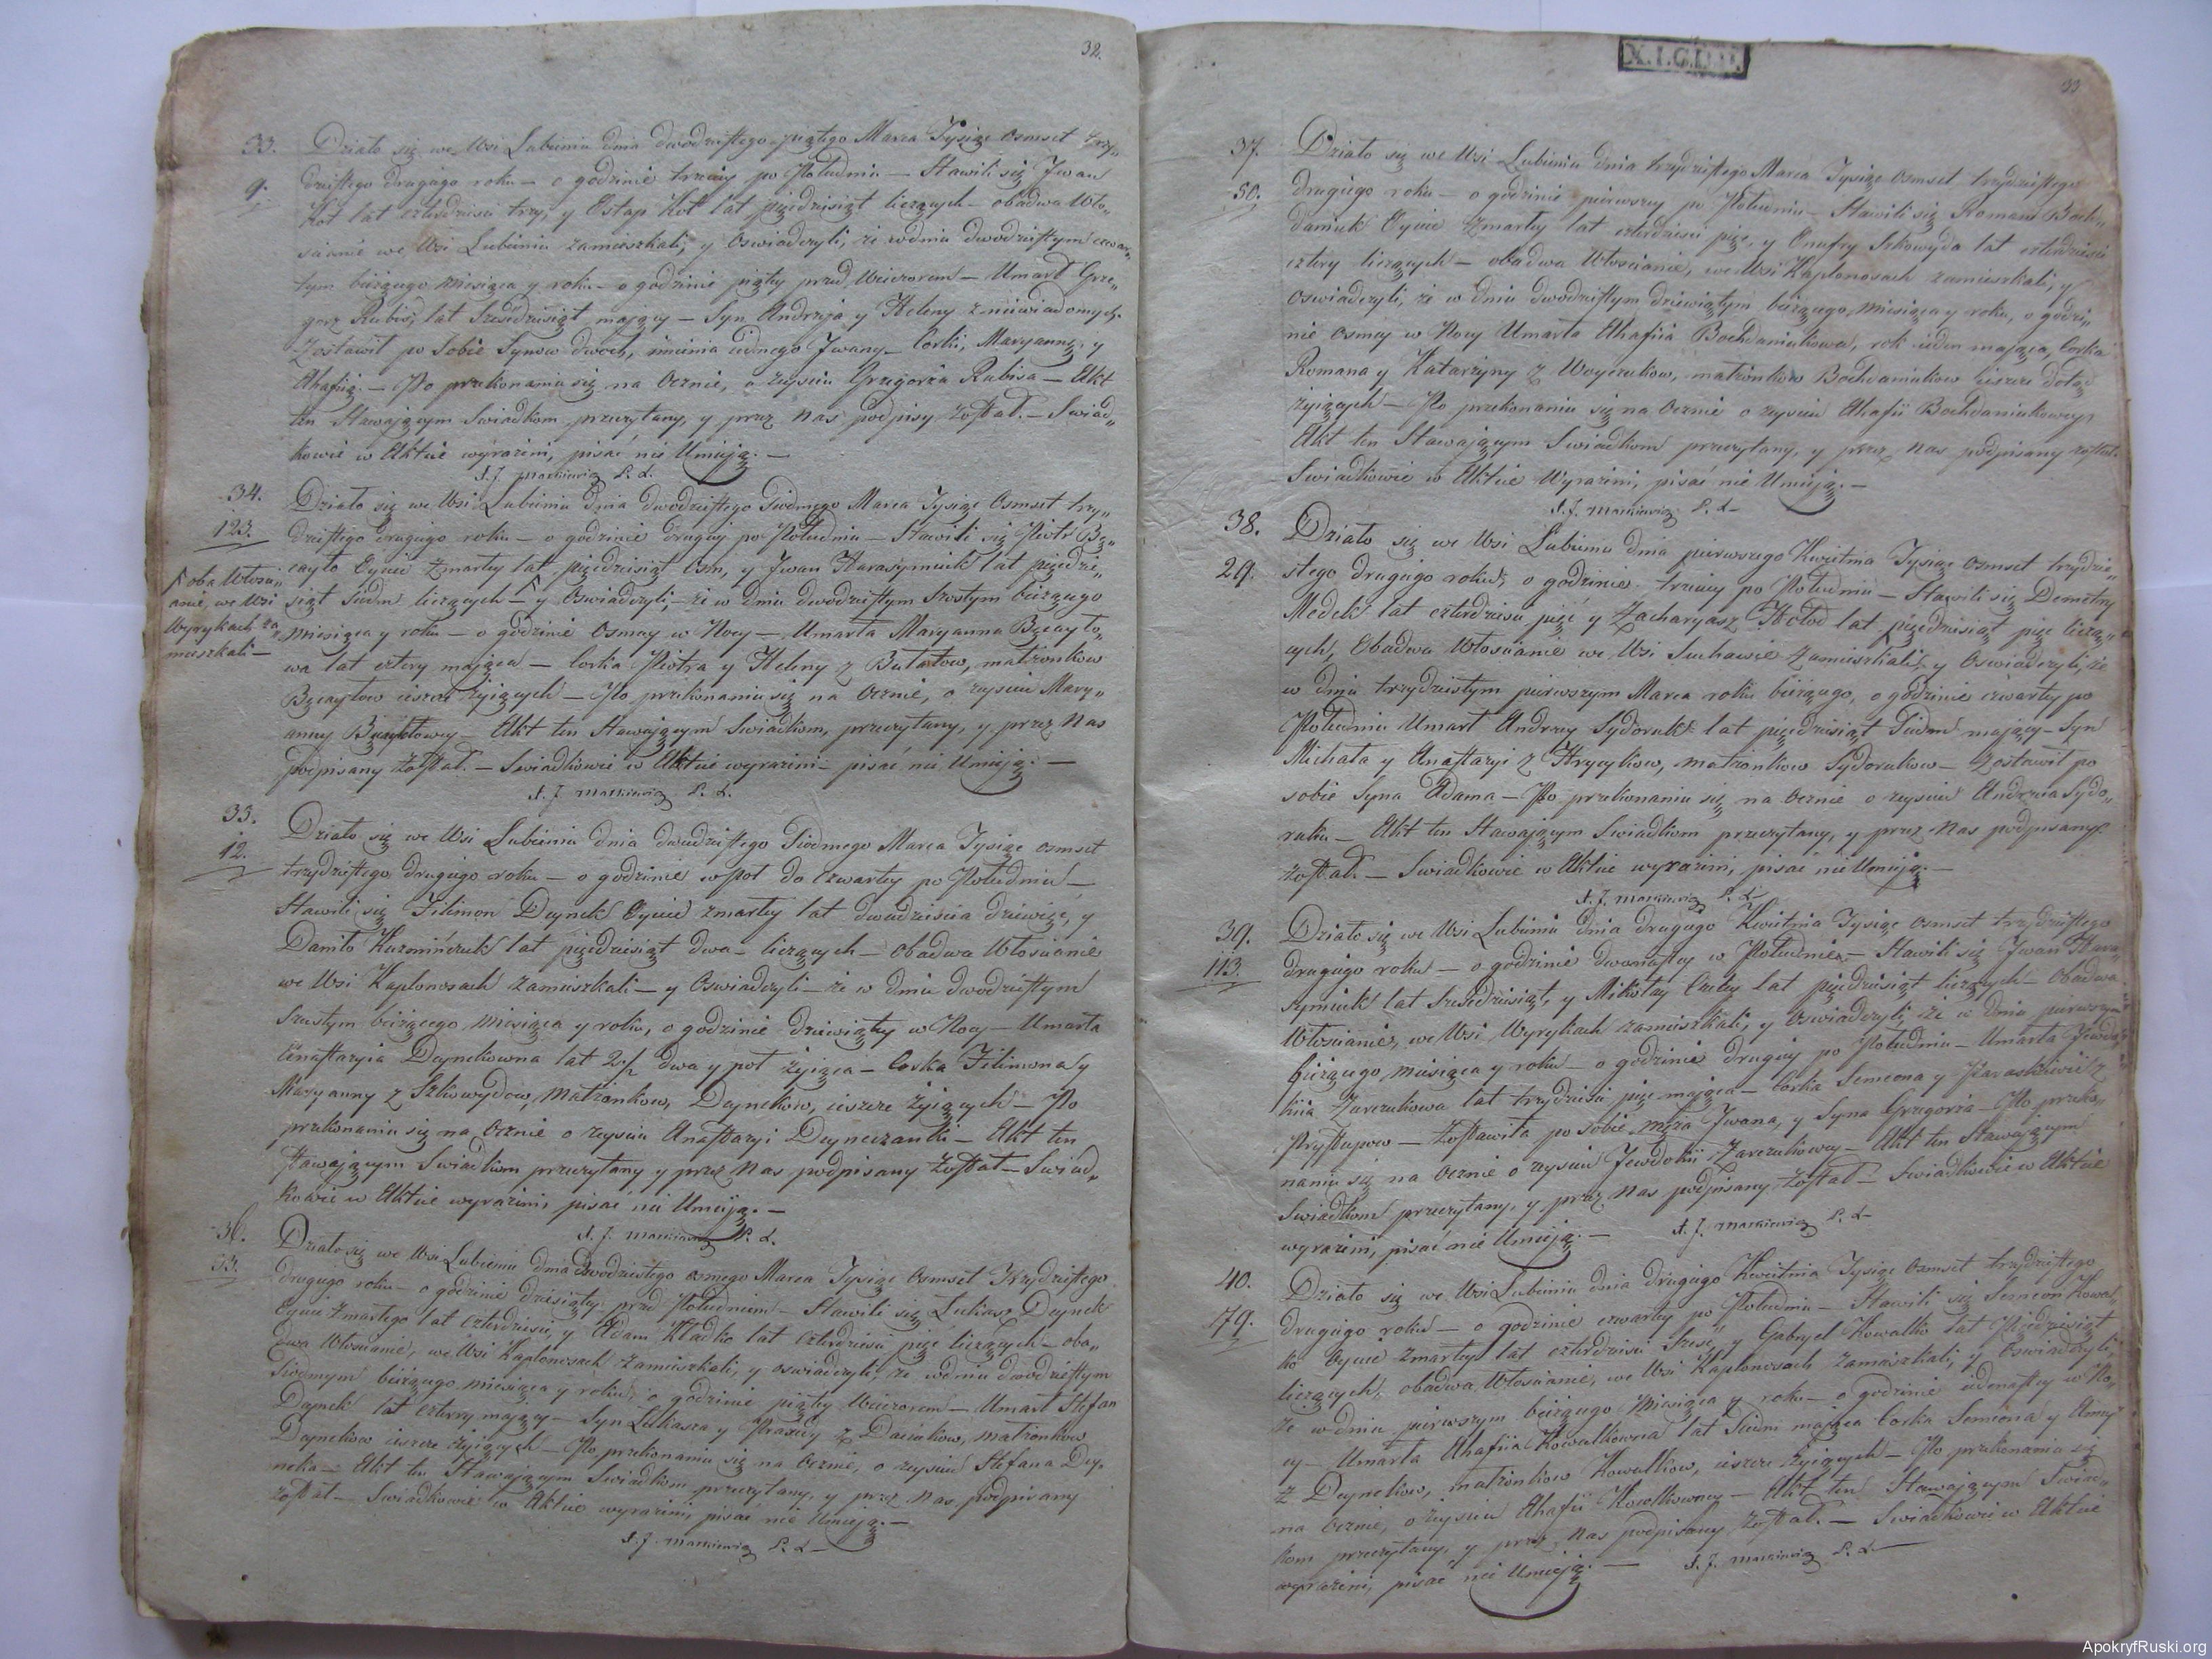 32.
33.
9.
Działo się we Wsi Lubieniu dnia dwodziestego piątego Marca Tysiąc osmset trzy„
dziestego drugiego roku — o godzinie trzeciey po Południu — Stawili się Jwan
Kot lat czterdzieści trzy, y Ostap Kot lat pięcdziesiąt liczących — obadwa Wło„
ścianie we Wsi Lubieniu zamieszkali, y oswiadczyli, że wdniu dwodziestym czwar„
tym bieżącego miesiąca y roku — o godzinie piątey przed Wieczorem — Umarł Grze„
gorz Rubiś, lat sześcdziesiąt maiący — Syn Andrzeja y Heleny z niewiadomych.
Zostawił po sobie Synow dwoch, imienia iednego Jwany — Corki, Maryannę, y
Ahafiią. — Po przekonaniu się na Ocznie, o zeysciu Grzegorza Rubisa — Akt
ten Stawaiącym Swiadkom przeczytany, y przez Nas podpisy został. — Swiad„
kowie w Akcie wyrażeni, pisać nie Umieją. —
X. J. Markiewicz P. L.
34.
123.
Działo się we Wsi Lubieniu dnia dwodziestego Siodmego Marca Tysiąc osmset trzy„
dziestego drugiego roku — o godzinie drugiey po Południu — Stawili się Piotr Bę„
cayło Oyciec Zmarłey lat pięcdziesiąt osm, y Jwan Harasymiuk lat pięcdzie„
siąt siedm liczących — y Oswiadczyli, — że w dniu dwodziestym szostym bieżącego
oba Włosci„
anie, we Wsi
Wyrykach za„
mieszkali —
miesiąca y roku — o godzinie osmey w Nocy — Umarła Maryanna Bęcayło„
wa lat cztery maiąca — Corka Piotra y Heleny z Bułatow, małzonkow
Bęcayłow ieszcze żyiących — Po przekonaniu się na Ocznie, o zeysciu Mary„
anny Bęcayłowey — Akt ten Stawaiącym Swiadkom, przeczytany, y przez Nas
podpisany został. — Swiadkowie w Akcie wyrażeni — pisać nie Umieją. —
X. J. Markiewicz P. L.
35.
12.
Działo się we Wsi Lubieniu dnia dwudziestego Siodmego Marca Tysiąc osmset
trzydziestego drugiego roku — o godzinie wpoł do czwartey po Południu —
Stawili się Filimon Deynek Oyciec zmarłey lat dwudzieścia dziewięc, y
Daniło Kuzmińczuk lat pięcdziesiąt dwa — liczących — Obadwa Włoscianie
we Wsi Kaplonosach zamieszkali — y Oswiadczyli — że w dniu dwodziestym
szustym bieżącego miesiąca y roku, o godzinie dziewiątey w Nocy — Umarła
Anastazyia Deynekowna lat 2½ dwa y poł żyiąca — Corka Filimona y
Maryanny z Szkowydow, Małzonkow, Deynekow, ieszcze żyiących — Po
przekonaniu się na Ocznie o zeysciu Anastazyi Deyneczanki — Akt ten
stawaiącym Swiadkom przeczytany y przez Nas podpisany został — Swiad„
kowie w Akcie wyrażeni, pisać nie Umieją. —
X. J. Markiewicz P. L.
36.
53.
Działo się we Wsi Lubieniu dnia Dwodziestego osmego Marca Tysiąc Osmset Trzydziestego
drugiego roku — o godzinie dziesiątey przed Południem — Stawili się Łukasz Deynek
Oyciec Zmarłego lat czterdzieści, y Adam Kładko lat czterdzieści pięc liczących — oba„
dwa Włoscianie, we Wsi Kaplonosach zamieszkali, y oswiadczyli, że wdniu dwodziestym
Siodmym bieżącego miesiąca y roku, o godzinie piątey Wieczorem — Umarł Stefan
Deynek lat cztery maiący — Syn Łukasza y Praxedy z Daciukow, małżonkow
Deynekow ieszcze żyiących — Po przekonaniu się na Ocznie, o zeysciu Stefana Dey„
neka — Akt ten Stawaiącym Swiadkom przeczytany, y przez Nas podpisany
został — Swiadkowie w Akcie wyrażeni pisać nie Umieją. —
X. J. Markiewicz P. L.
X.I.C.D.
33
37.
50.
Działo się we Wsi Lubieniu dnia trzydziestego Marca Tysiąc Osmset trzydziestego
drugiego roku — o godzinie pierwszey po Południu — Stawili się Roman Boch„
daniuk Oyciec Zmarłey lat czterdzieści pięc, y Onufry Szkowyda lat czterdzieści
cztery liczących — obadwa Włoscianie, we Wsi Kaplonosach zamieszkali, y
Oswiadczyli, że w dniu dwodziestym dziewiątym bieżącego, miesiąca y roku, o godzi„
nie osmey w Nocy Umarła Ahafiia Bochdaniukowa, rok ieden maiąca, Corka
Romana y Katarzyny z Woyczukow, małzonkow Bochdaniukow ieszcze dotąd
żyiących — Po przekonaniu się na Ocznie o zeysciu Ahafii Bochdaniukowey,
Akt ten Stawaiącym Swiadkom przeczytany, y przez Nas podpisany został.
Swiadkowie w Akcie Wyrażeni, pisać nie Umieją. —
X. J. Markiewicz P. L.
38.
29.
Działo się we Wsi Lubieniu dnia pierwszego Kwietnia Tysiąc osmset trzydzie„
stego drugiego roku, o godzinie trzeciey po Południu — Stawili się Demetry
Medek lat czterdzieści pięć y Zacharyasz Hołod lat pięcdziesiąt pięc licząc„
ych, Obadwa Włoscianie we Wsi Suchawie Zamieszkali, y Oswiadczyli, że
w dniu trzydziestym pierwszym Marca roku bieżącego, o godzinie czwartey po
Południu Umarł Andrzey Sydoruk lat pięcdziesiąt Siedm maiący — Syn
Michała y Anastazyi z Hrycykow, małzonkow Sydorukow — Zostawił po
sobie Syna Adama — Po przekonaniu się na Ocznie o zeysciu Andrzeia Sydo„
ruka — Akt ten Stawaiącym Swiadkom przeczytany, y przez Nas podpisany
został. — Swiadkowie w Akcie wyrażeni, pisać nie Umieją. —
X. J. Markiewicz P. L.
39.
113.
Działo się we Wsi Lubieniu dnia drugiego Kwietnia Tysiąc osmset trzydziestego
drugiego roku — o godzinie dwonastey w Południe — Stawili się Jwan Hara„
symiuk lat sześcdziesiąt, y Mikołay Czeley lat pięcdziesiąt liczących — Obadwa
Włoscianie, we Wsi Wyrykach zamieszkali, y Oswiadczyli, że w dniu pierwszym
bieżącego, miesiąca y roku — o godzinie drugiey po Południu — Umarła Jewdo„
kiia Zarczukowa lat trzydzieści pięc maiąca — Corka Semeona y Paraskiewii z
Prystupow — Zostawiła po sobie męża Jwana, y Syna Grzegorza — Po przeko„
naniu się na Ocznie o zeysciu Jewdokii Zarczukowey — Akt ten Stawaiącym
Swiadkom przeczytany, y przez Nas podpisany został — Swiadkowie w Akcie
wyrażeni, pisać nie Umieją. —
X. J. Markiewicz P. L.
40.
79.
Działo się we Wsi Lubieniu dnia drugiego Kwietnia Tysiąc Osmset trzydziestego
drugiego roku — o godzinie czwartey po Południu — Stawili się Semeon Kowal„
ko Oyciec Zmarłey lat czterdzieści sześc, y Gabryel Kowalko lat Pięcdziesiąt
liczących, obadwa Włoscianie, we Wsi Kaplonosach zamieszkali, y Oswiadczyli,
że w dniu pierwszym bieżącego Miesiąca y roku — o godzinie iedenastey w No„
cy — Umarła Ahafiia Kowalkowna lat Siedm maiąca Corka Semeona y Anny
z Deynekow, małzonkow Kowalkow, ieszcze żyiących — Po przekonaniu się
na Ocznie, o zeysciu Ahafii Kowalkowney — Akt ten Stawaiącym Swiad„
kom przeczytany, y przez Nas podpisany został. — Swiadkowie w Akcie
wyrażeni, pisać nie Umieją. —
X. J. Markiewicz P. L.
ApokryfRuski.org